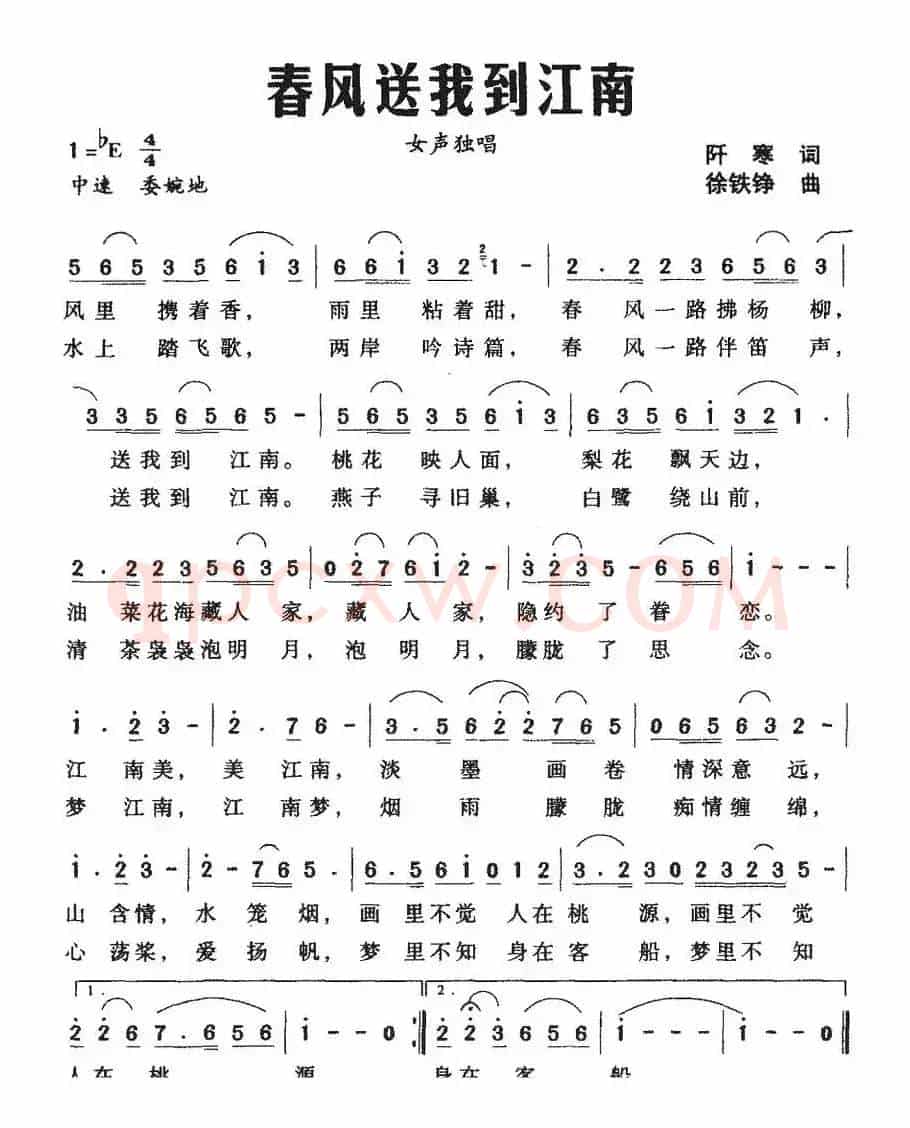 春风送我到江南
女声独唱
1=♭E 4/4
阡 寒 词
中速 委婉地
徐铁铮 曲
5 6 5 3 5 6 i 3 | 6 6 i 3 2 1 - | 2 . 2 2 3 6 5 6 3 |
风里 携着香, 雨里 粘着甜, 春 风一路拂杨 柳,
水上 踏飞歌, 两岸 吟诗篇, 春 风一路伴笛 声,
3 3 5 6 5 6 5 - | 5 6 5 3 5 6 i 3 | 6 3 5 6 i 3 2 1 . |
送我到 江南。 桃花 映人面, 梨花 飘天边,
送我到 江南。 燕子 寻旧巢, 白鹭 绕山前,
2 . 2 2 3 5 6 3 5 | 0 2 7 6 i 2 - | 3 2 3 5 - 6 5 6 | i - - - |
qpcxw.com
油 菜花海藏人 家, 藏 人 家, 隐约 了 眷 恋。
清 茶袅袅泡明 月, 泡 明 月, 朦胧 了 思 念。
i . 2 3 - | 2 . 7 6 - | 3 . 5 6 2 2 7 6 5 | 0 6 5 6 3 2 - |
江 南美, 美 江南, 淡 墨 画 卷 情深意 远,
梦 江南, 江 南梦, 烟 雨 朦 胧 痴情缠 绵,
i . 2 3 - | 2 - 7 6 5 . | 6 . 5 6 i 0 i 2 | 3 . 2 3 0 2 3 2 3 5 - |
山 含情, 水 笼 烟, 画 里不觉 人在 桃 源, 画里不 觉
心 荡桨, 爱 扬 帆, 梦 里不知 身在 客 船, 梦里不 知
1. 2.
2 2 6 7 . 6 5 6 | i - - 0 :| 2 2 3 6 5 6 | i - - - | i - 0 ‖
人在 桃 源 身在 客 船